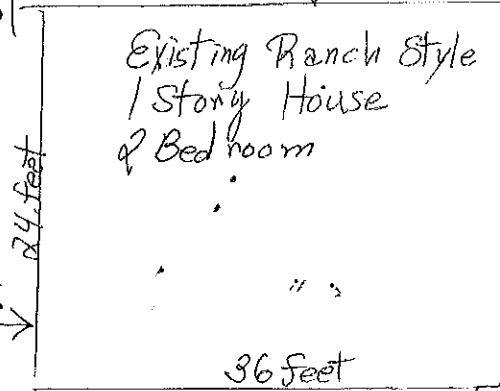 Existing Ranch Style
1 Story House
2 Bedroom
24 feet
36 feet